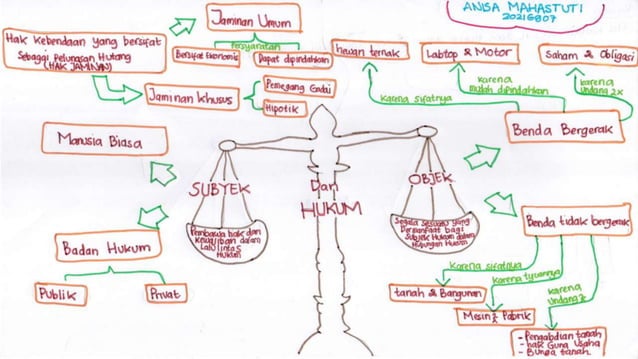 ANISA MAHASTUTI
20216807
Hak Kebendaan yang bersifat
Sebagai Pelunasan Hutang
(HAK JAMINAN)
Jaminan Umum
Persyaratan
Bersifat Ekonomis
Dapat dipindahkan
Jaminan Khusus
Pemegang Gadai
Hipotik
hewan ternak
Labtop & Motor
Saham & Obligasi
karena sifatnya
karena
mudah dipindahkan
karena
undang 2x
Benda Bergerak
Manusia Biasa
SUBYEK
Dan
HUKUM
OBJEK
Pembawa hak dan
Kewajiban dalam
Lalu lintas
Hukum
Segala sesuatu yang
Bermanfaat bagi
Subjek Hukum dalam
Hubungan Hukum
Badan Hukum
Publik
Privat
Benda tidak bergerak
karena sifatnya
karena tujuannya
karena
undang 2x
tanah & Bangunan
Mesin2 Pabrik
- Pengabdian tanah
- hak Guna Usaha
- Bunga tanah